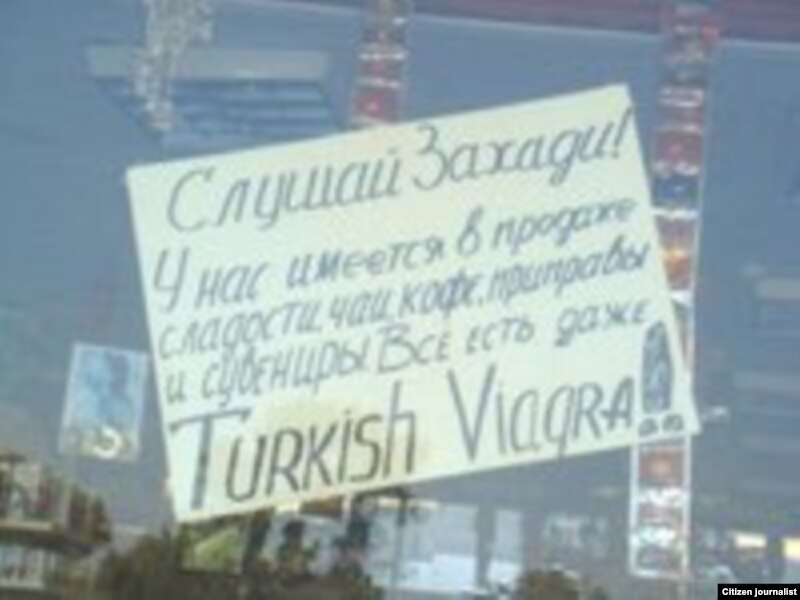 Слушай Захади!
У нас имеется в продаже
сладости, чаи, кофе, приправы
и сувениры. Все есть даже
TURKISh ViagRA!!
Citizen journalist